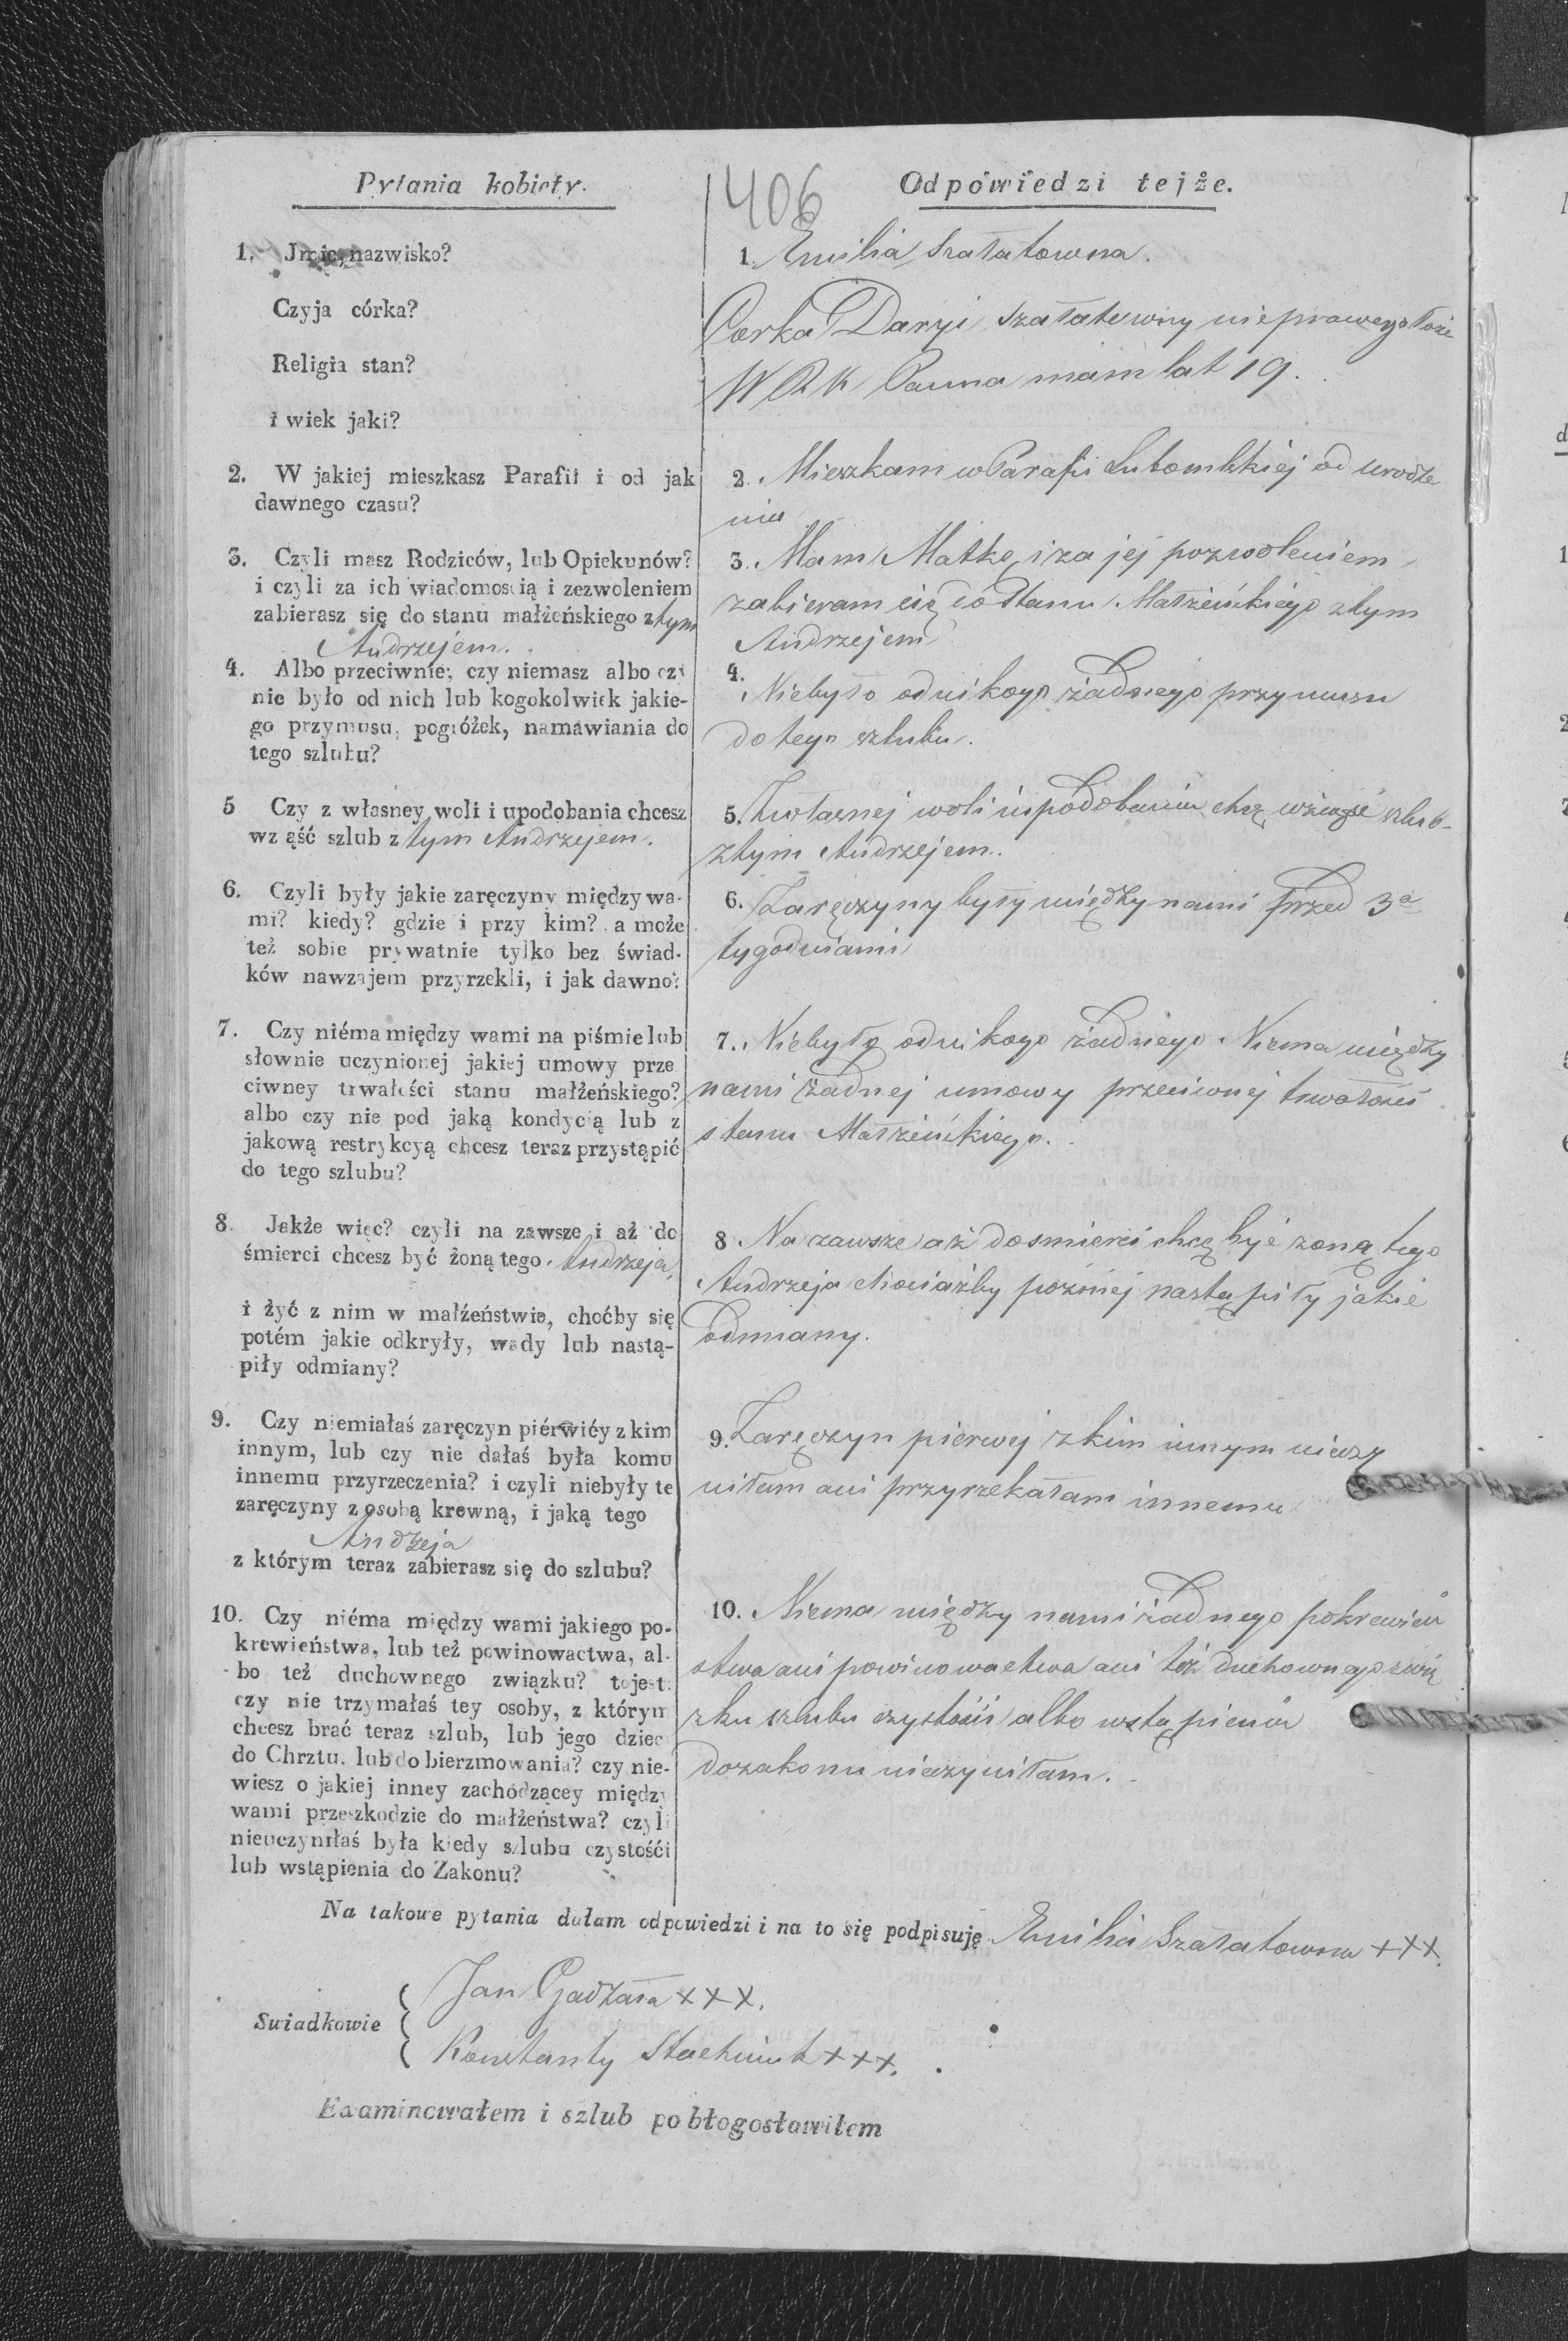 Pytania kobiety.
406
Odpowiedzi tejże.
1. Jmie, nazwisko?
Czyja córka?
Religia stan?
i wiek jaki?
1. Emilia Szałatowna.
Corka Daryi Szałatowny nieprawego łoże
W R K Panna mam lat 19.
2. W jakiej mieszkasz Parafii i od jak
dawnego czasu?
2. Mieszkam w Parafii Lubomlskiej od urodze
nia
3. Czyli masz Rodziców, lub Opiekunów?
i czyli za ich wiadomoscią i zezwoleniem
zabierasz się do stanu małżeńskiego z tym
Andrzejem.
3. Mam Matkę i za jej pozwoleniem
zabieram się do stanu Małżeńskiego z tym
Andrzejem
4. Albo przeciwnie; czy niemasz albo czy
nie było od nich lub kogokolwiek jakie-
go przymusu, pogróżek, namawiania do
tego szlubu?
4.
Niebyło od nikogo żadnego przymusu
do tego szlubu.
5 Czy z własney woli i upodobania chcesz
wz ąść szlub z tym Andrzejem.
5. Zwłasnej woli i upodobania chcę wziąść szlub
z tym Andrzejem.
6. Czyli były jakie zaręczyny między wa-
mi? kiedy? gdzie i przy kim? a może
też sobie prywatnie tylko bez świad-
ków nawzajem przyrzekli, i jak dawno?
6. Zaręczyny były między nami przed 3a
tygodniami
7. Czy niéma między wami na piśmie lub
słownie uczynionej jakiej umowy prze
ciwney trwałości stanu małżeńskiego?
albo czy nie pod jaką kondycią lub z
jakową restrykcyą chcesz teraz przystąpić
do tego szlubu?
7. Niebyło od nikogo żadnego Niema między
nami żadnej umowy przeciwnej trwałości
stanu Małżeńskiego.
8. Jakże więc? czyli na zawsze i aż do
śmierci chcesz być żoną tego Andrzeja,
i żyć z nim w małżeństwie, choćby się
potém jakie odkryły, wady lub nastą-
piły odmiany?
8 Na zawsze aż do smierci chcę być żoną tego
Andrzeja chociażby pózniej nastąpiły jakie
odmiany.
9. Czy niemiałaś zaręczyn piérwiéy z kim
innym, lub czy nie dałaś była komu
innemu przyrzeczenia? i czyli niebyły te
zaręczyny z osobą krewną, i jaką tego
Andzeja
z którym teraz zabierasz się do szlubu?
9. Zaręczyn pierwej z kim innym nieczy
niłam ani przyrzekałam innemu
10. Czy niéma między wami jakiego po-
krewieństwa, lub też powinowactwa, al-
bo też duchownego związku? tojest:
czy nie trzymałaś tey osoby, z którym
chcesz brać teraz szlub, lub jego dziec
do Chrztu. lub do bierzmowania? czy nie-
wiesz o jakiej inney zachodzącey między
wami przeszkodzie do małżeństwa? czyli
nieuczyniłaś była kiedy szlubu czystośći
lub wstąpienia do Zakonu?
10. Niema między nami żadnego pokrewień
stwa ani powinowactwa ani też duchownego zwią
zku szlubu czystości albo wstąpienia
do zakonu nieczyniłam.
Na takowe pytania dałam odpowiedzi i na to się podpisuję Emilia Szałatowna +++.
Swiadkowie
Jan Gadzała +++.
Konstanty Stachniuk +++.
Examinowałem i szlub pobłogosławiłem